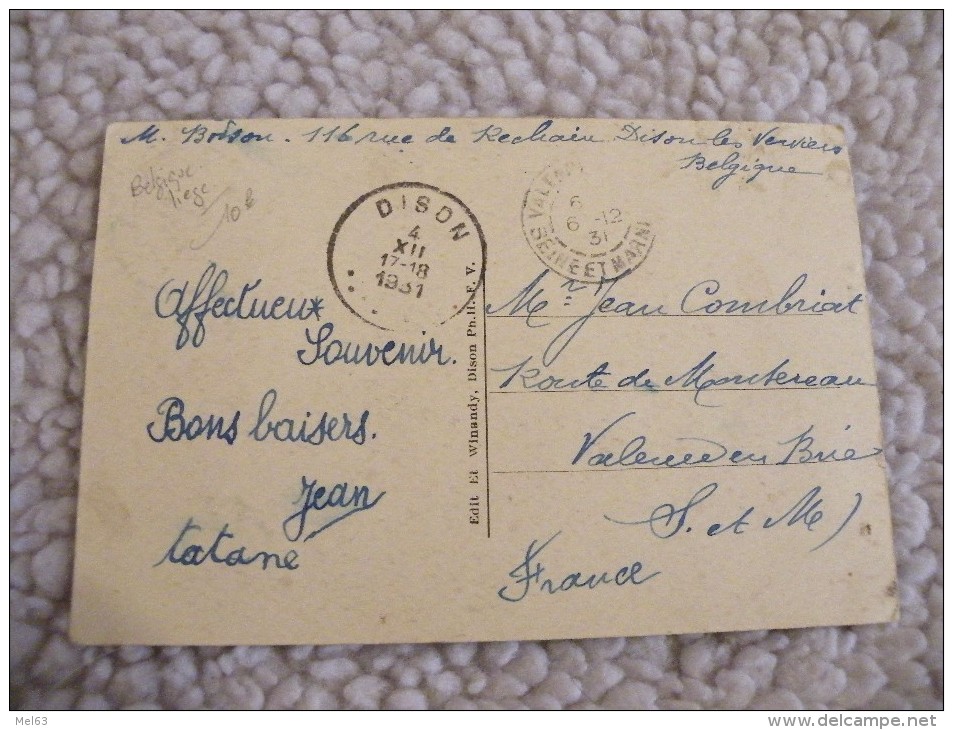 M. Boison. 116 rue de Rechain Dison les Verviers
Belgique
Belgique
liege
10 €
DISON
4
XII
17-18
1931
VALEN
6
6 -12
31
SEINE ET MARNE
Affectueux
Souvenir.
Bons baisers.
Jean
tatane
Edit Et Winandy, Dison Ph. H. F. V.
Mr Jean Combriat
Route de Montereau
Valence en Brie
S. et M)
France
Mel63
http://www.delcampe.net